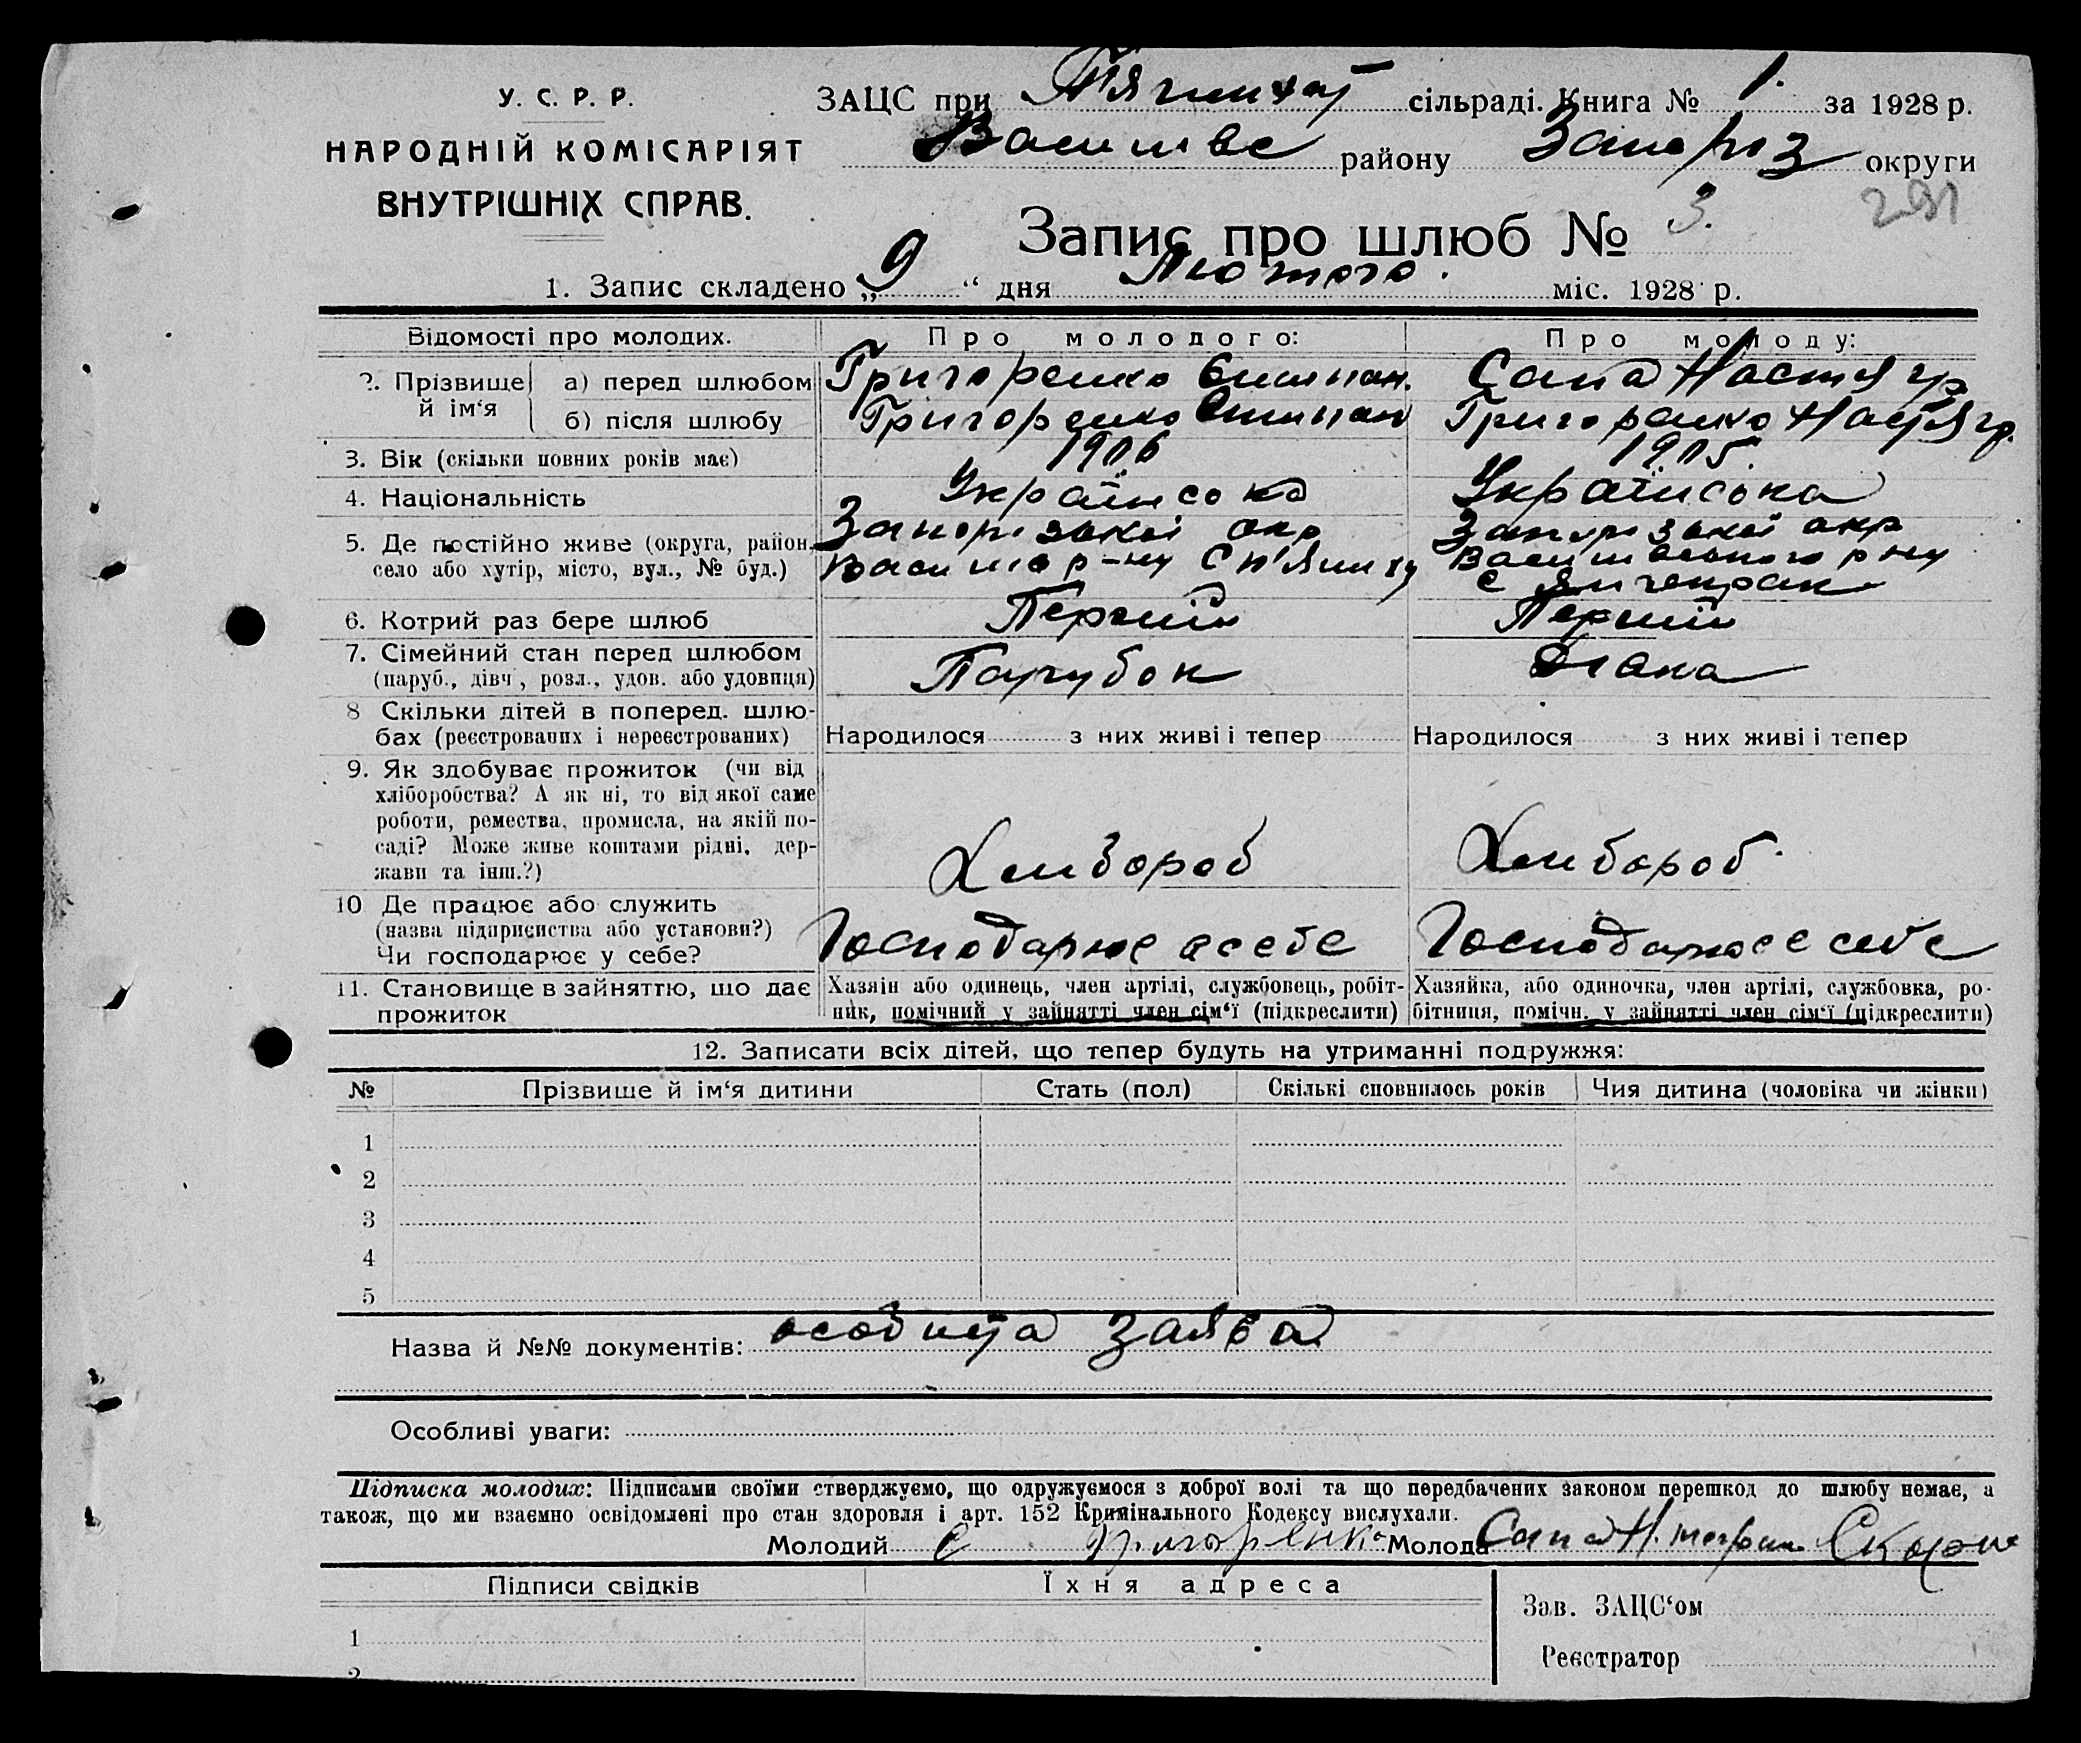 У. С. Р. Р.
НАРОДНІЙ КОМІСАРІЯТ
ВНУТРІШНІХ СПРАВ.
ЗАЦС при П'ятихат сільраді. Книга № 1. за 1928 р.
Васильвс району Запоріз округи
291
Запис про шлюб № 3.
1. Запис складено „ 9 “ дня Лютого. міс. 1928 р.
Відомості про молодих. Про молодого: Про молоду:
2. Прізвище й ім‘я а) перед шлюбом Григоренко Сап Настя гр
б) після шлюбу Григоренко Григоренко Настя гр.
3. Вік (скільки повних років має) 1906 1905.
4. Національність Українська Українська
5. Де постійно живе (округа, район, Запорізької окр Запорізької окр
село або хутір, місто, вул., № буд.) р-ну С П'ятиху р ну
с Янчекрак
6. Котрий раз бере шлюб Перший Перший
7. Сімейний стан перед шлюбом
(паруб., дівч., розл., удов. або удовиця) Парубок
8 Скільки дітей в поперед. шлю-
бах (реєстрованих і нереєстрованих) Народилося з них живі і тепер Народилося з них живі і тепер
9. Як здобуває прожиток (чи від
хліборобства? А як ні, то від якої саме
роботи, ремества, промисла, на якій по-
саді? Може живе коштами рідні, дер-
жави та інш.?) Хлибороб Хлибороб.
10 Де працює або служить
(назва підприєнства або установи?)
Чи господарює у себе? Господарює в себе Господарює в себе
11. Становище в зайняттю, що дає
прожиток
Хазяїн або одинець, член артілі, службовець, робіт-
ник, помічний у зайнятті член сім‘ї (підкреслити)
Хазяйка, або одиночка, член артілі, службовка, ро-
бітниця, помічн. у зайнятті член сім‘ї (підкреслити)
12. Записати всіх дітей, що тепер будуть на утриманні подружжя:
№ Прізвище й ім‘я дитини Стать (пол) Скількі сповнилось років Чия дитина (чоловіка чи жінки)
1
2
3
4
5
Назва й №№ документів: особиста заява
Особливі уваги:
Підписка молодих: Підписами своїми стверджуємо, що одружуємося з доброї волі та що передбачених законом перешкод до шлюбу немає, а
також, що ми взаємно освідомлені про стан здоровля і арт. 152 Кримінального Кодексу вислухали.
Молодий Є Григоренко Молода Сап Н.
Підписи свідків Їхня адреса
Зав. ЗАЦС‘ом
1
Реєстратор
2